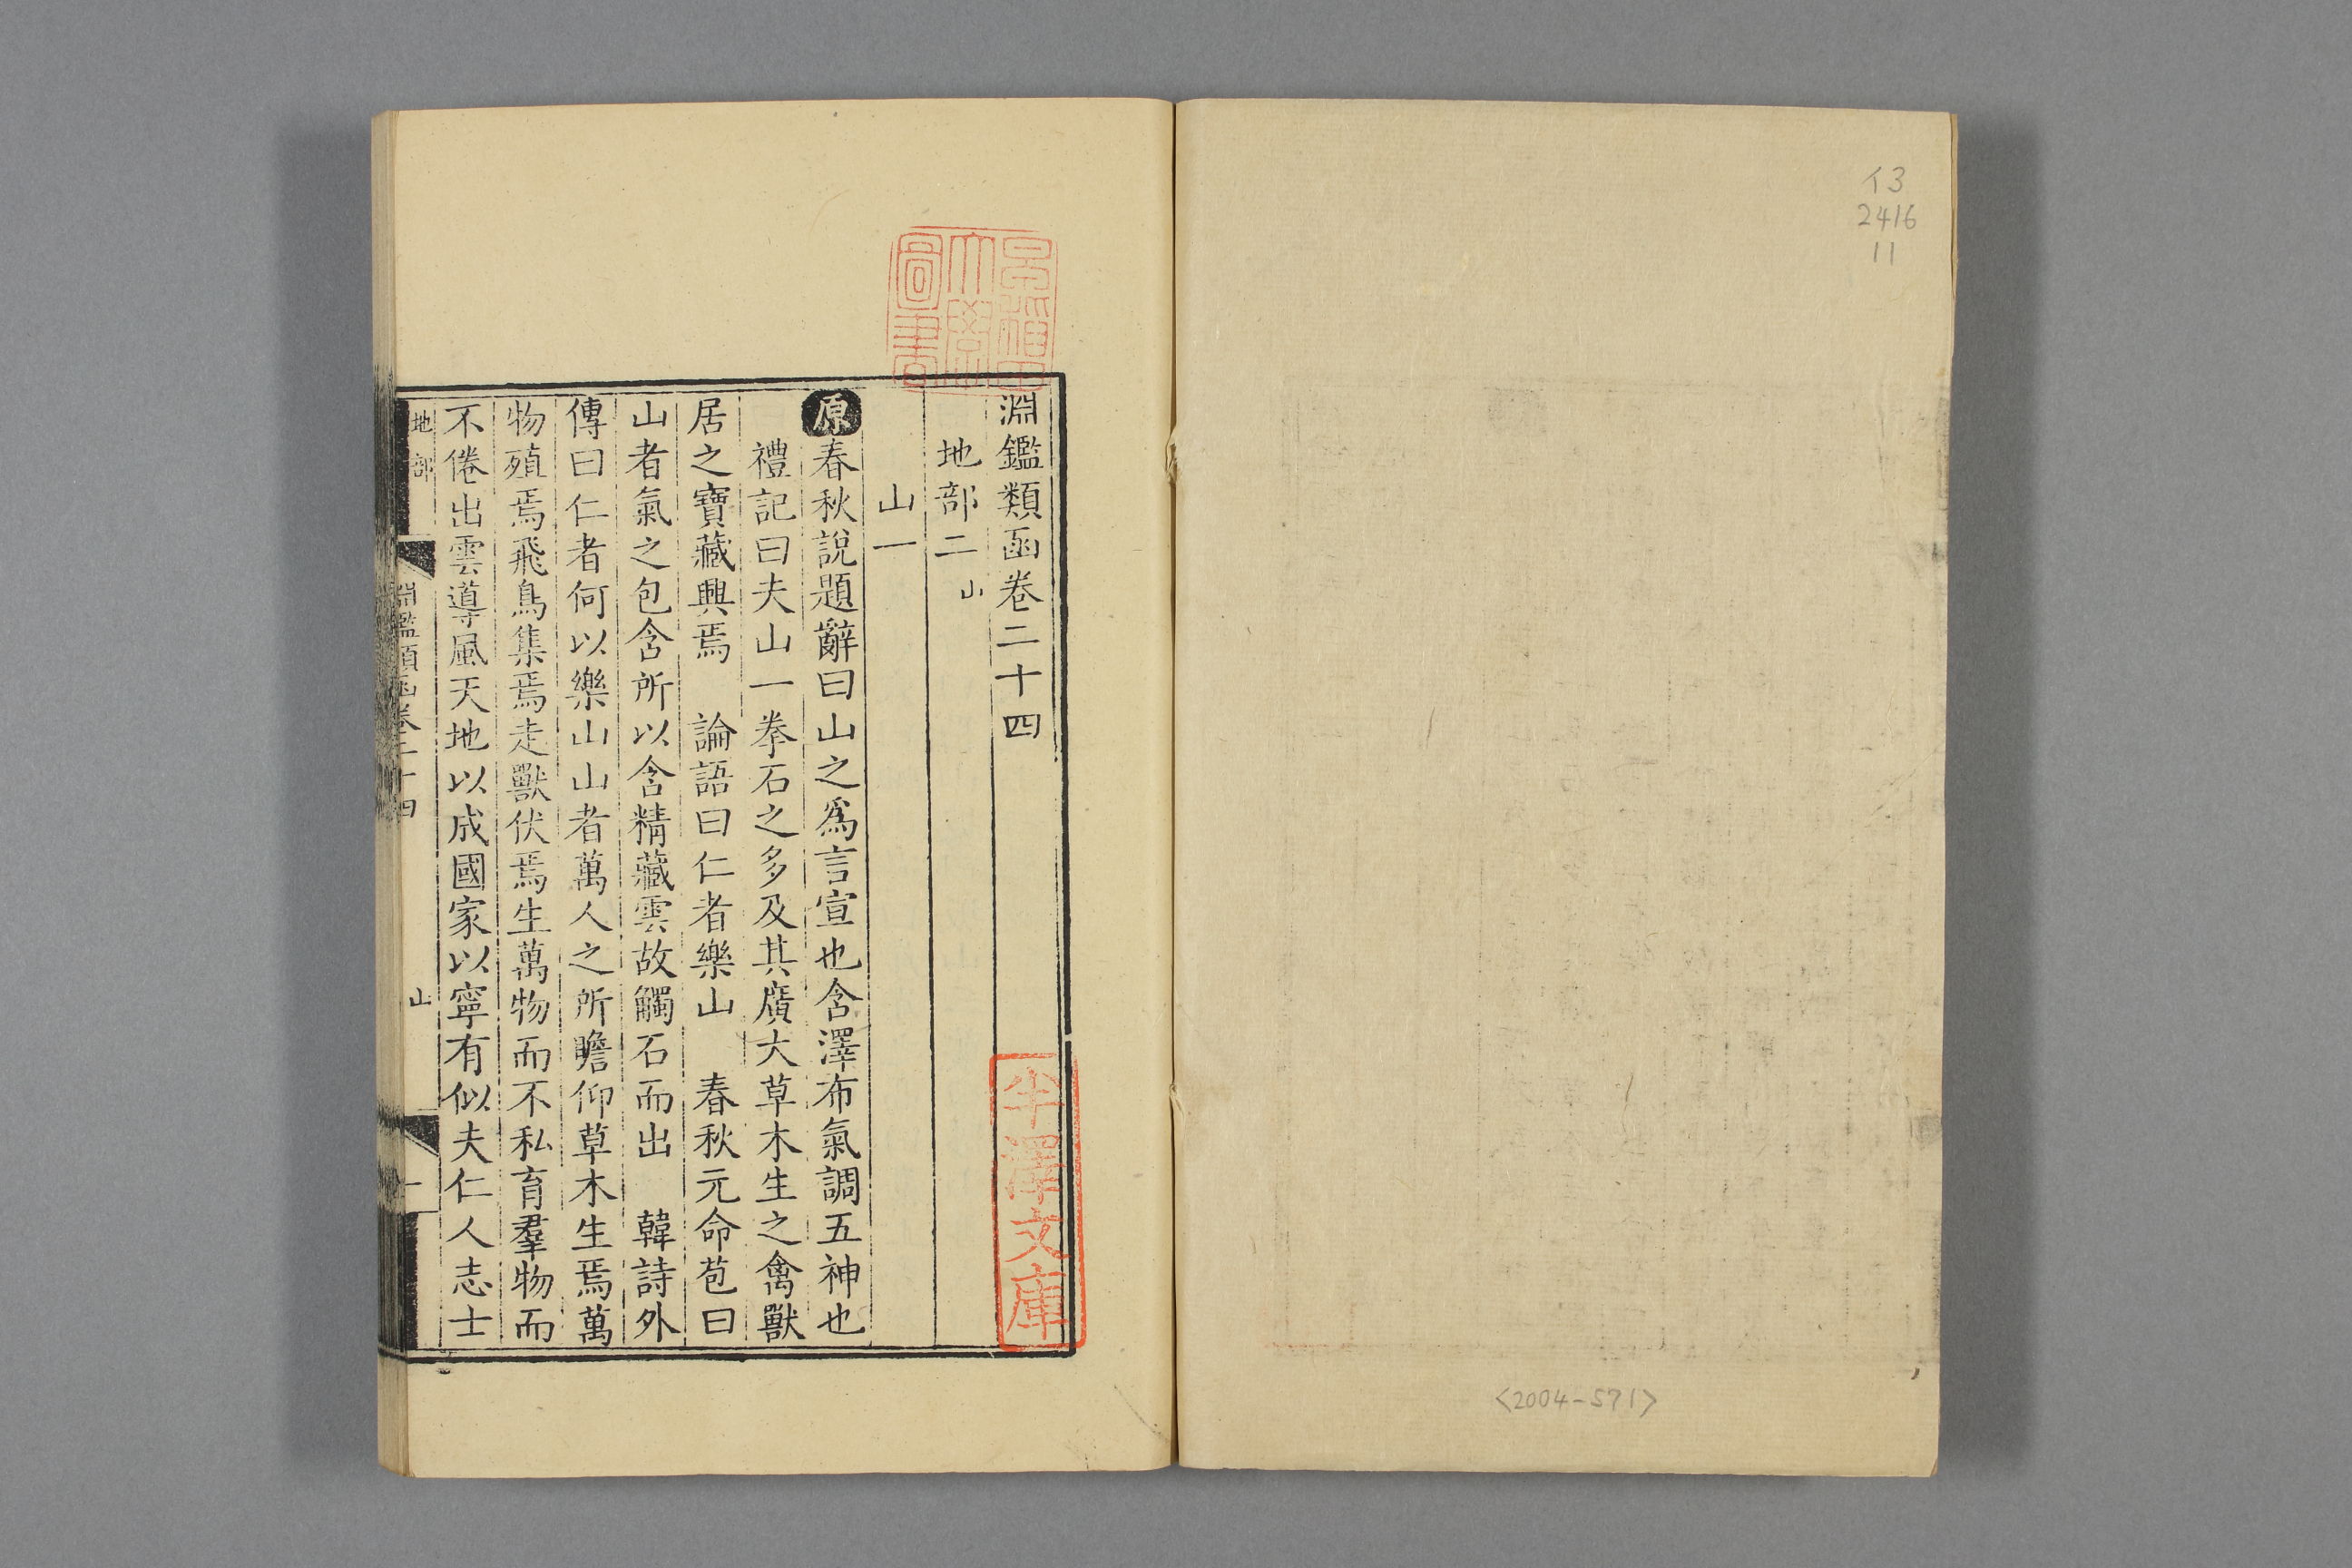 イ3
2416
11
<2004-571>
早稲田
大學
圖書
淵鑑類函卷二十四
地部二 山
山一
原春秋說題辭曰山之爲言宣也含澤布氣調五神也
禮記曰夫山一拳石之多及其廣大草木生之禽獸
居之寶藏興焉 論語曰仁者樂山 春秋元命苞曰
山者氣之包含所以含精藏雲故觸石而出 韓詩外
傳曰仁者何以樂山山者萬人之所瞻仰草木生焉萬
物殖焉飛鳥集焉走獸伏焉生萬物而不私育羣物而
不倦出雲導風天地以成國家以寧有似夫仁人志士
地部 淵鑑類函卷二十四 山 一
半澤文庫